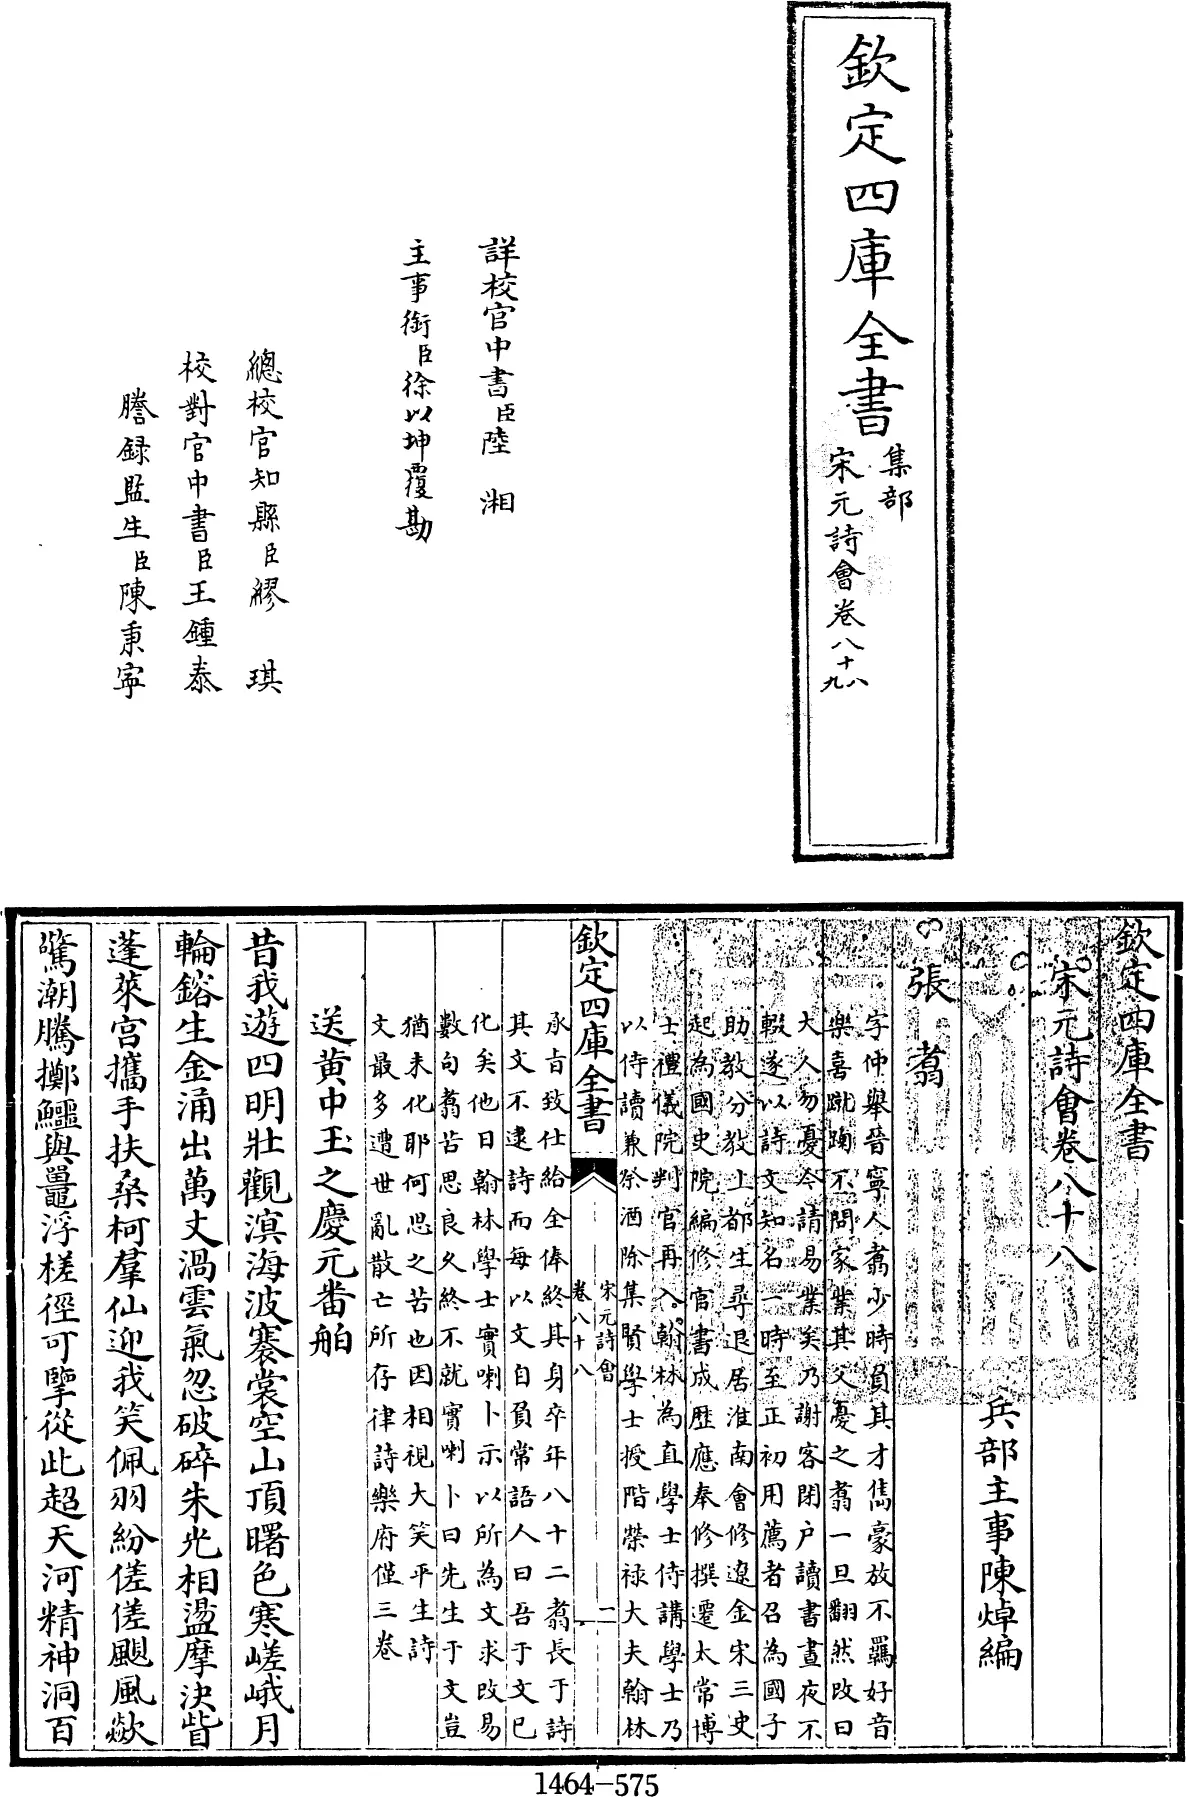 欽定四庫全書
集部
宋元詩會卷八十八
九
詳校官中書臣陸湘
主事銜臣徐以坤覆勘
總校官知縣臣繆琪
校對官中書臣王鍾泰
謄録監生臣陳秉寧
欽定四庫全書
宋元詩會卷八十八
兵部主事陳焯編
張翥
字仲舉晉寧人翥少時負其才雋豪放不羈好音
樂喜蹴踘不問家業其父憂之翥一旦翻然改曰
大人勿憂今請易業矣乃謝客閉户讀書晝夜不
輟遂以詩文知名一時至正初用薦者召為國子
助教分教上都生尋退居淮南會修遼金宋三史
起為國史院編修官書成歷應奉修撰遷太常博
士禮儀院判官再入翰林為直學士侍講學士乃
以侍讀兼祭酒除集賢學士授階榮禄大夫翰林
欽定四庫全書
宋元詩會
卷八十八
二
承旨致仕給全俸終其身卒年八十二翥長于詩
其文不逮詩而每以文自負常語人曰吾于文已
化矣他日翰林學士實喇卜示以所為文求改易
數句翥苦思良久終不就實喇卜曰先生于文豈
猶未化耶何思之苦也因相視大笑平生詩
文最多遭世亂散亡所存律詩樂府僅三卷
送黄中玉之慶元番舶
昔我遊四明壯觀溟海波褰裳空山頂曙色寒嵯峨月
輪鎔生金涌出萬丈渦雲氣忽破碎朱光相盪摩決眥
蓬萊宫攜手扶桑柯羣仙迎我笑佩羽紛傞傞颶風歘
驚潮騰擲鱷與鼍浮槎徑可犖從此超天河精神洞百
1464-575